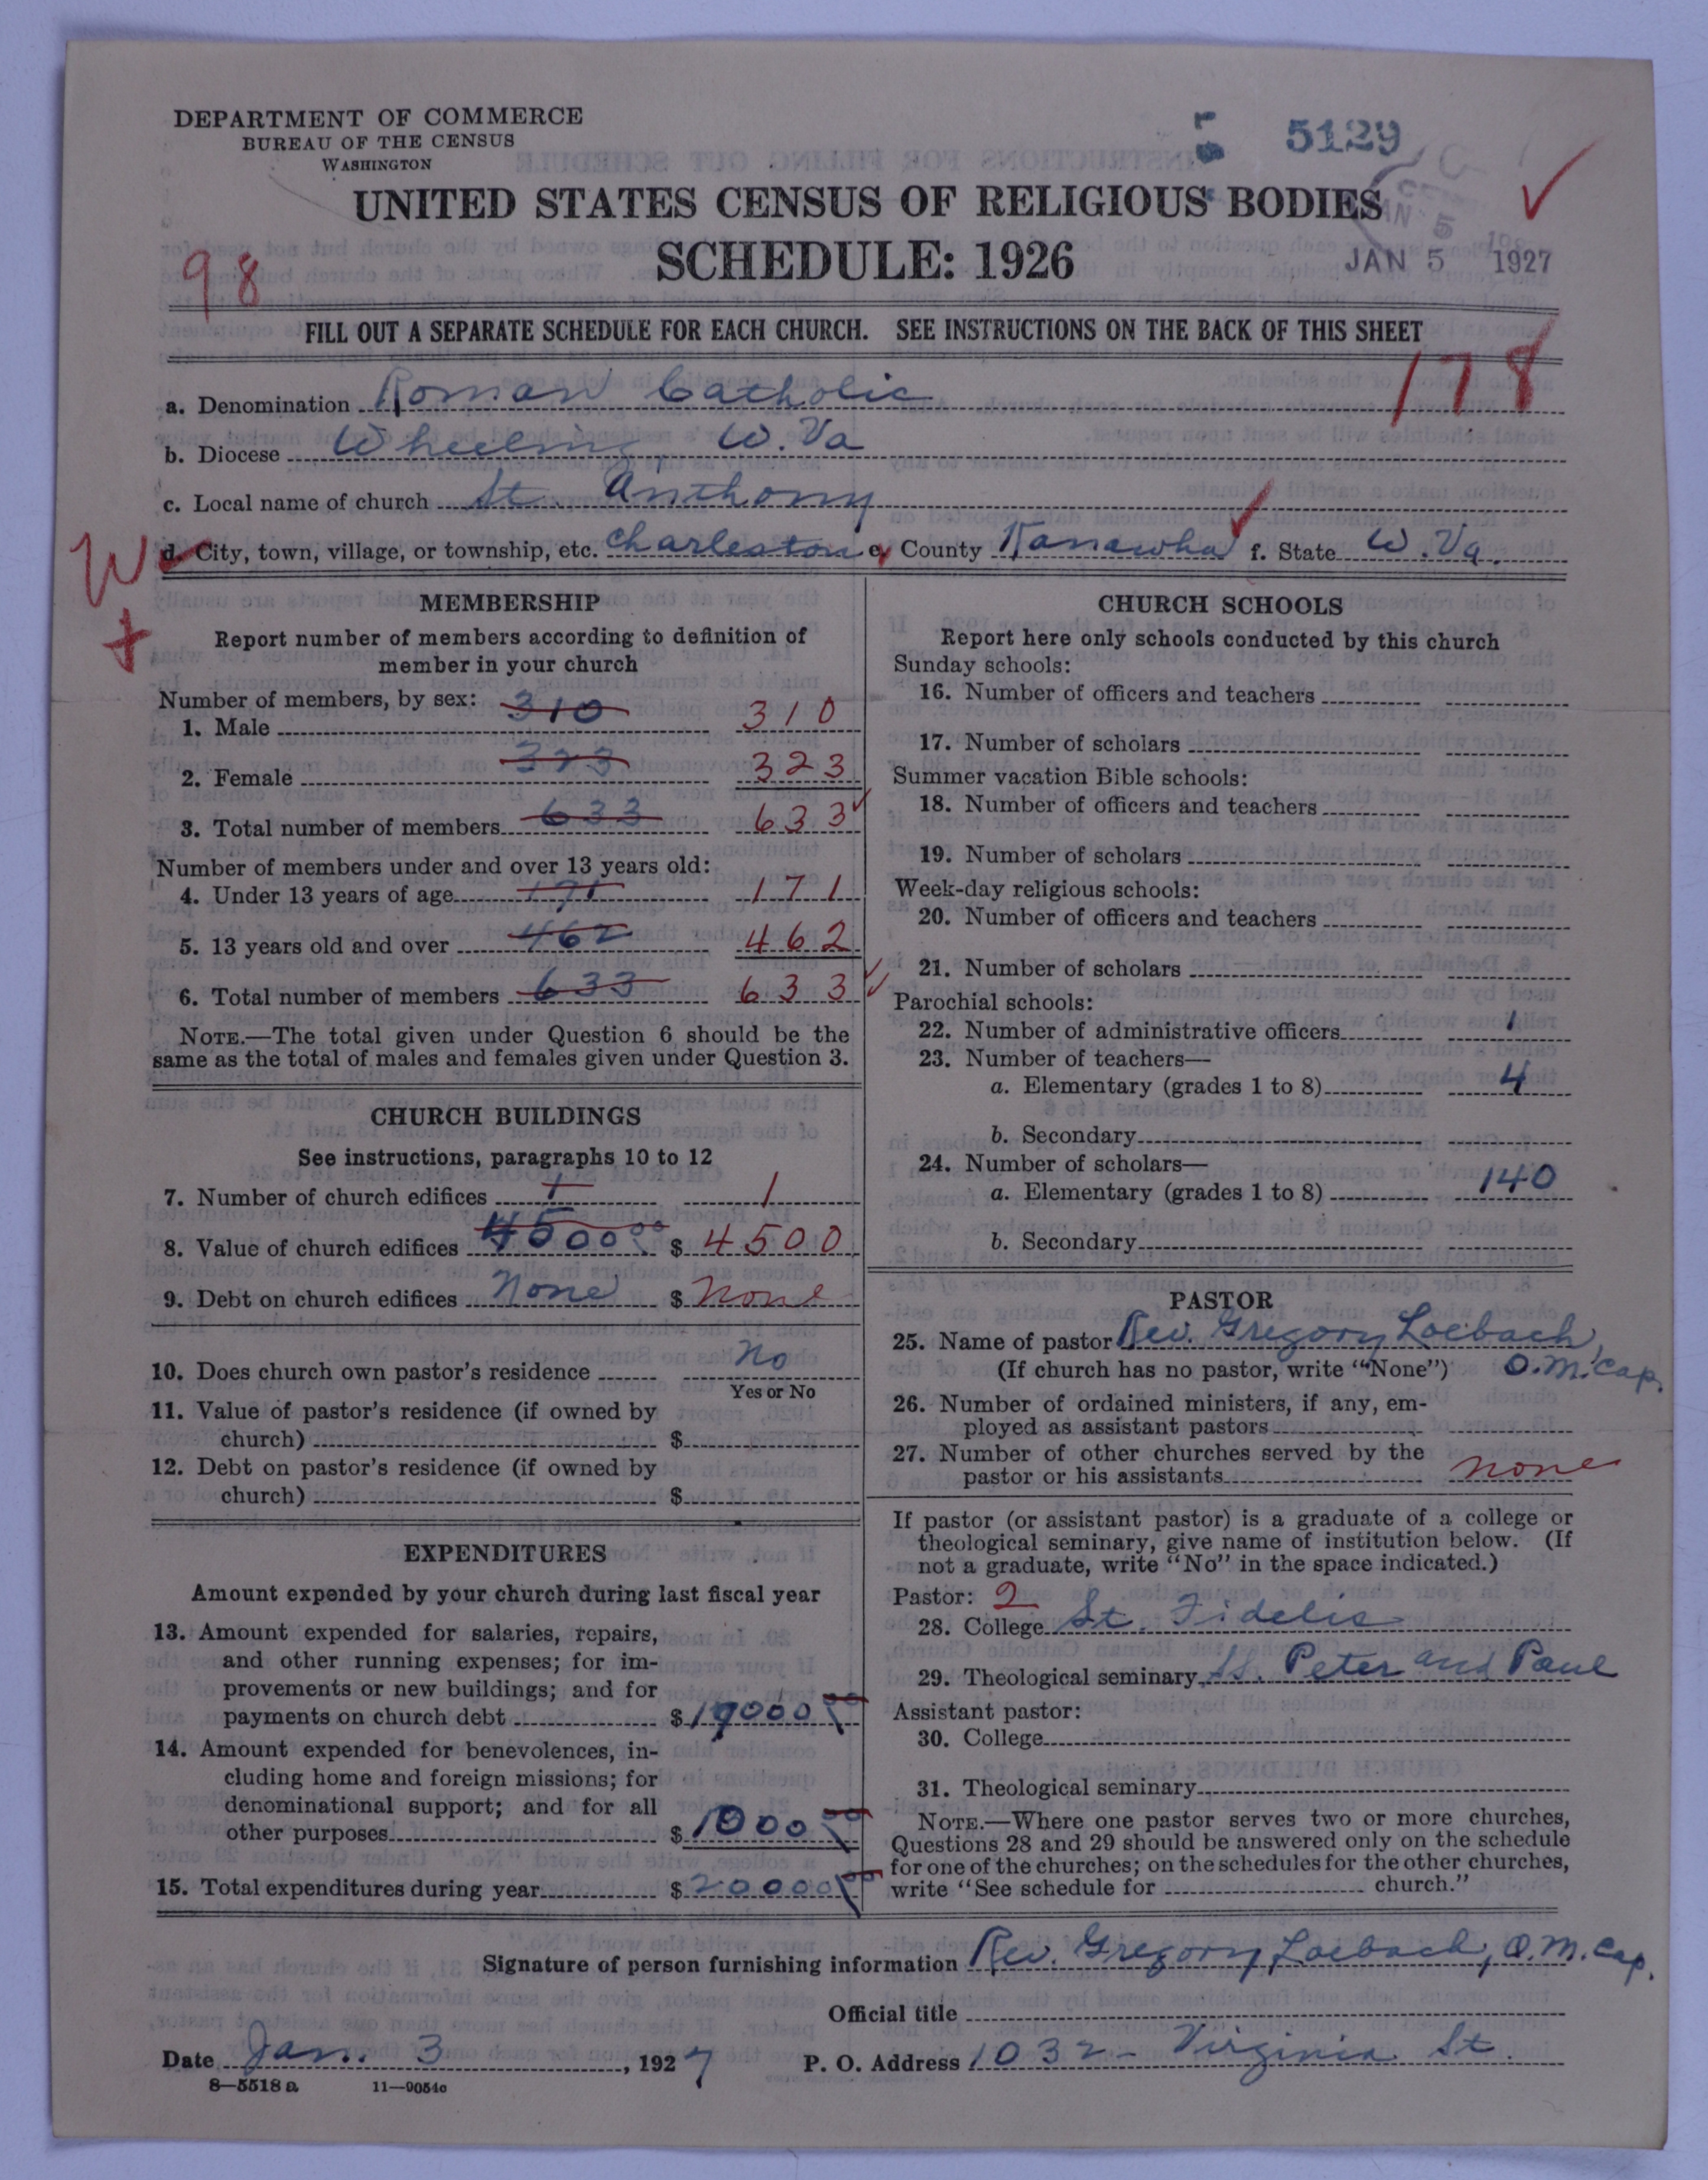 DEPARTMENT OF COMMERCE
BUREAU OF THE CENSUS
WASHINGTON
5 5129
UNITED STATES CENSUS OF RELIGIOUS BODIES
SCHEDULE: 1926
JAN 5 1927
98
FILL OUT A SEPARATE SCHEDULE FOR EACH CHURCH. SEE INSTRUCTIONS ON THE BACK OF THIS SHEET
178
a. Denomination Roman Catholic
b. Diocese Wheeling W. Va
c. Local name of church St. Anthony
W d. City, town, village, or township, etc. Charleston e. County Kanawha f. State W. Va.
MEMBERSHIP
Report number of members according to definition of
member in your church
Number of members, by sex:
1. Male 310 310
2. Female 323 323
3. Total number of members 633 633
Number of members under and over 13 years old:
4. Under 13 years of age 171 171
5. 13 years old and over 462 462
6. Total number of members 633 633
NOTE.—The total given under Question 6 should be the
same as the total of males and females given under Question 3.
CHURCH BUILDINGS
See instructions, paragraphs 10 to 12
7. Number of church edifices 1 1
8. Value of church edifices 4500 00 $ 4500
9. Debt on church edifices None $ None
10. Does church own pastor's residence No
Yes or No
11. Value of pastor's residence (if owned by
church) $
12. Debt on pastor's residence (if owned by
church) $
EXPENDITURES
Amount expended by your church during last fiscal year
13. Amount expended for salaries, repairs,
and other running expenses; for im-
provements or new buildings; and for
payments on church debt $ 19000 00
14. Amount expended for benevolences, in-
cluding home and foreign missions; for
denominational support; and for all
other purposes $ 1000 00
15. Total expenditures during year $ 20000 00
CHURCH SCHOOLS
Report here only schools conducted by this church
Sunday schools:
16. Number of officers and teachers
17. Number of scholars
Summer vacation Bible schools:
18. Number of officers and teachers
19. Number of scholars
Week-day religious schools:
20. Number of officers and teachers
21. Number of scholars
Parochial schools:
22. Number of administrative officers 1
23. Number of teachers—
a. Elementary (grades 1 to 8) 4
b. Secondary
24. Number of scholars—
a. Elementary (grades 1 to 8) 140
b. Secondary
PASTOR
25. Name of pastor Rev. Gregory Loebach,
(If church has no pastor, write "None") O.M.Cap.
26. Number of ordained ministers, if any, em-
ployed as assistant pastors
27. Number of other churches served by the
pastor or his assistants none
If pastor (or assistant pastor) is a graduate of a college or
theological seminary, give name of institution below. (If
not a graduate, write "No" in the space indicated.)
Pastor: 2
28. College St. Fidelis
29. Theological seminary SS. Peter and Paul
Assistant pastor:
30. College
31. Theological seminary
NOTE.—Where one pastor serves two or more churches,
Questions 28 and 29 should be answered only on the schedule
for one of the churches; on the schedules for the other churches,
write "See schedule for church."
Signature of person furnishing information Rev. Gregory Loebach, O.M.Cap.
Official title
Date Jan. 3, 1927 P. O. Address 1032 - Virginia St.
8—5518 a 11—9054c